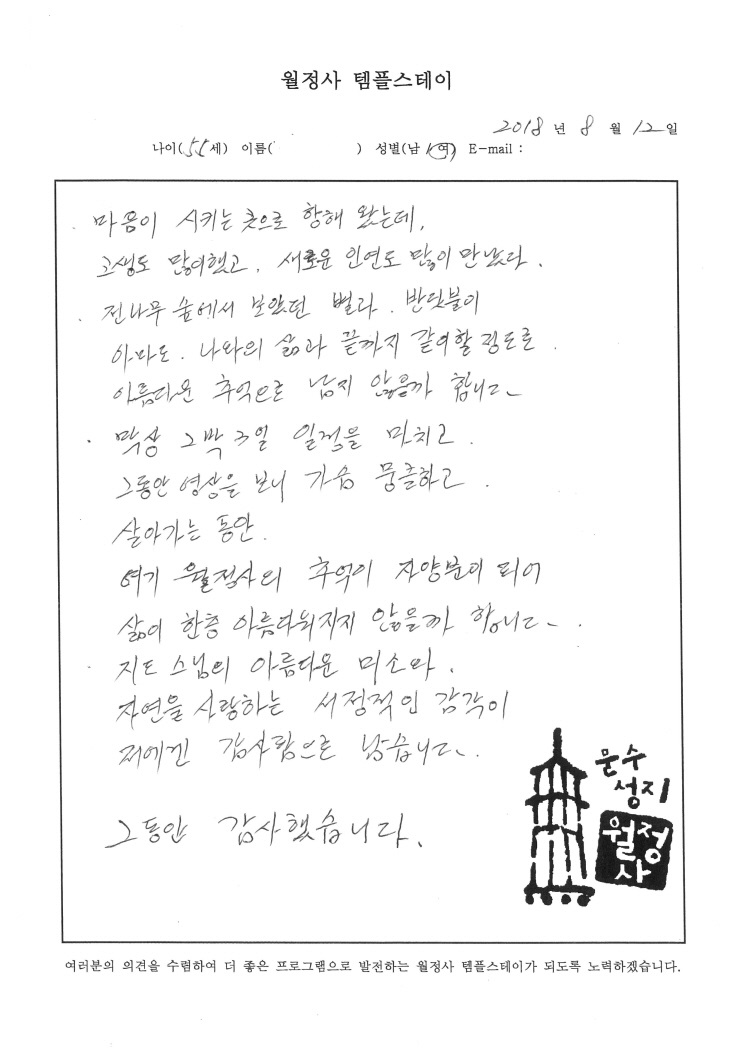 월정사 템플스테이
2018 년 8 월 12 일
나이(55세) 이름( ) 성별(남/여) E-mail :
. 마음이 시키는 곳으로 향해 왔는데,
고생도 많이했고, 새로운 인연도 많이 만났다.
. 전나무 숲에서 보았던 별과. 반딧불이
아마도. 나와의 삶과 끝까지 같이할 정도로.
아름다운 추억으로 남지 않을까 합니다
. 막상 2박 3일 일정을 마치고.
그동안 영상을 보니 가슴 뭉클하고.
살아가는 동안.
여기 월정사의 추억이 자양분이 되어
삶이 한층 아름다워지지 않을까 합니다.
. 지도 스님의 아름다운 미소와.
자연을 사랑하는 서정적인 감각이
저에겐 감사함으로 남습니다.
그동안 감사했습니다.
문수
성지
월정
사
여러분의 의견을 수렴하여 더 좋은 프로그램으로 발전하는 월정사 템플스테이가 되도록 노력하겠습니다.